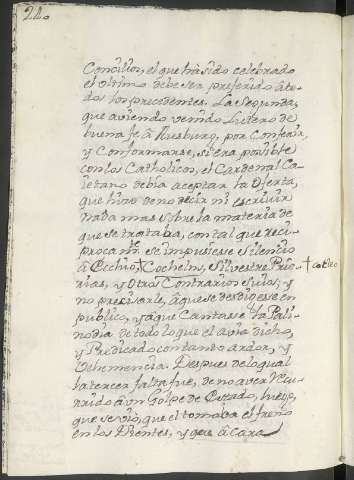 220
Concilios, el que ha sido celebrado
el Ultimo debe ser preferido á to-
dos los precedentes. La Segunda,
que aviendo venido Lutero de
buena fe á Ausburg, por Conferir,
y Conformarse, si era posible
con los Catholicos, el Cardenal Ca-
ietano debia aceptar la Oferta,
que hizo de no decir ni escribir
nada mas sobre la materia de
que se trataba, con tal que reci-
procam.te se impusiese silencio
á Ecchio, † Cocheins, Silvestre Prie-
rias, y otros Contrarios suios, y
no precisarle, á que se desdixese en
publico, y á que Cantase la Pali-
nodia de todo lo que el avia dicho,
y Predicado con tanto ardor, y
Vehemencia. Despues de lo qual
la tercer falta fue, de no aver recu-
rrido á un Golpe de Estado, luego,
que se vio, que el tomaba el freno
en los Dientes, y que á Cara